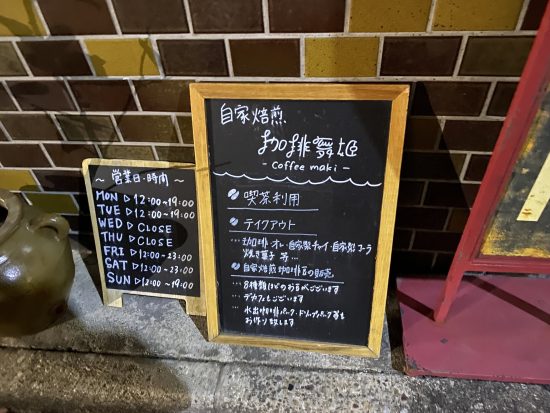 ～ 営業日・時間 ～
MON ▷ 12:00~19:00
TUE ▷ 12:00~19:00
WED ▷ CLOSE
THU ▷ CLOSE
FRI ▷ 12:00~23:00
SAT ▷ 12:00~23:00
SUN ▷ 12:00~19:00
自家焙煎
珈排舞姫
- Coffee maki -
喫茶利用
テイクアウト
… 珈排・オレ・自家製チャイ・自家製コーラ
焼き菓子 等…
自家焙煎珈排豆の販売
… 8種類ほどのお豆がございます
デカフェもございます
… 水出珈排パック・ドリップパック等も
お作り致します